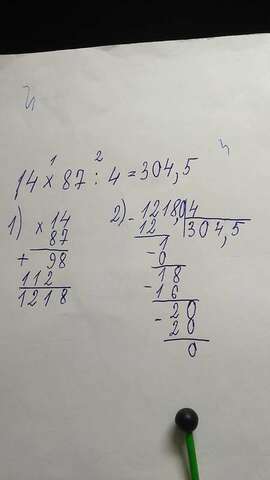 1 2
14 × 87 : 4 = 304,5
1) × 14
87
+ 98
112
1218
2) - 1218,0 4
12 304,5
1
- 0
18
- 16
- 20
20
0